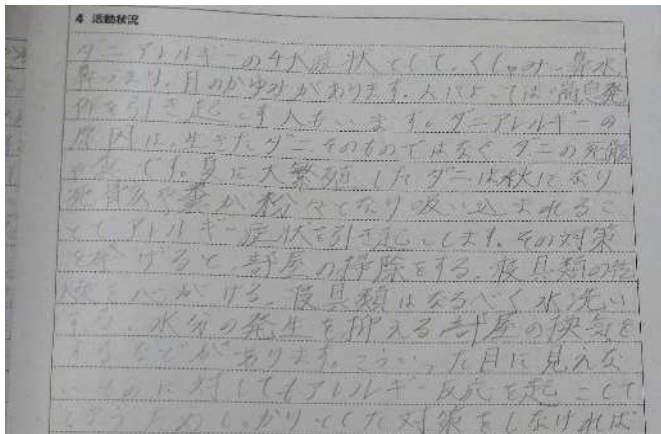 4 活動状況
ダニアレルギーの4大症状として、くしゃみ・鼻水
鼻づまり、目のかゆみがあります。人によっては喘息発
作を引き起こす人もいます。ダニアレルギーの
原因は、生きたダニそのものではなくダニの死骸
や糞です。夏に大繁殖したダニは秋になり
死骸や糞が粉々となり吸い込まれるこ
とでアレルギー症状を引き起こします。その対策
を挙げると、部屋の掃除をする、寝具類の乾
燥を心がける、寝具類はなるべく水洗い
する、水分の発生を抑える部屋の換気を
するなどがあります。こういった目に見えな
いものに対してもアレルギー反応を起こして
しまうためしっかりとした対策をしなければ